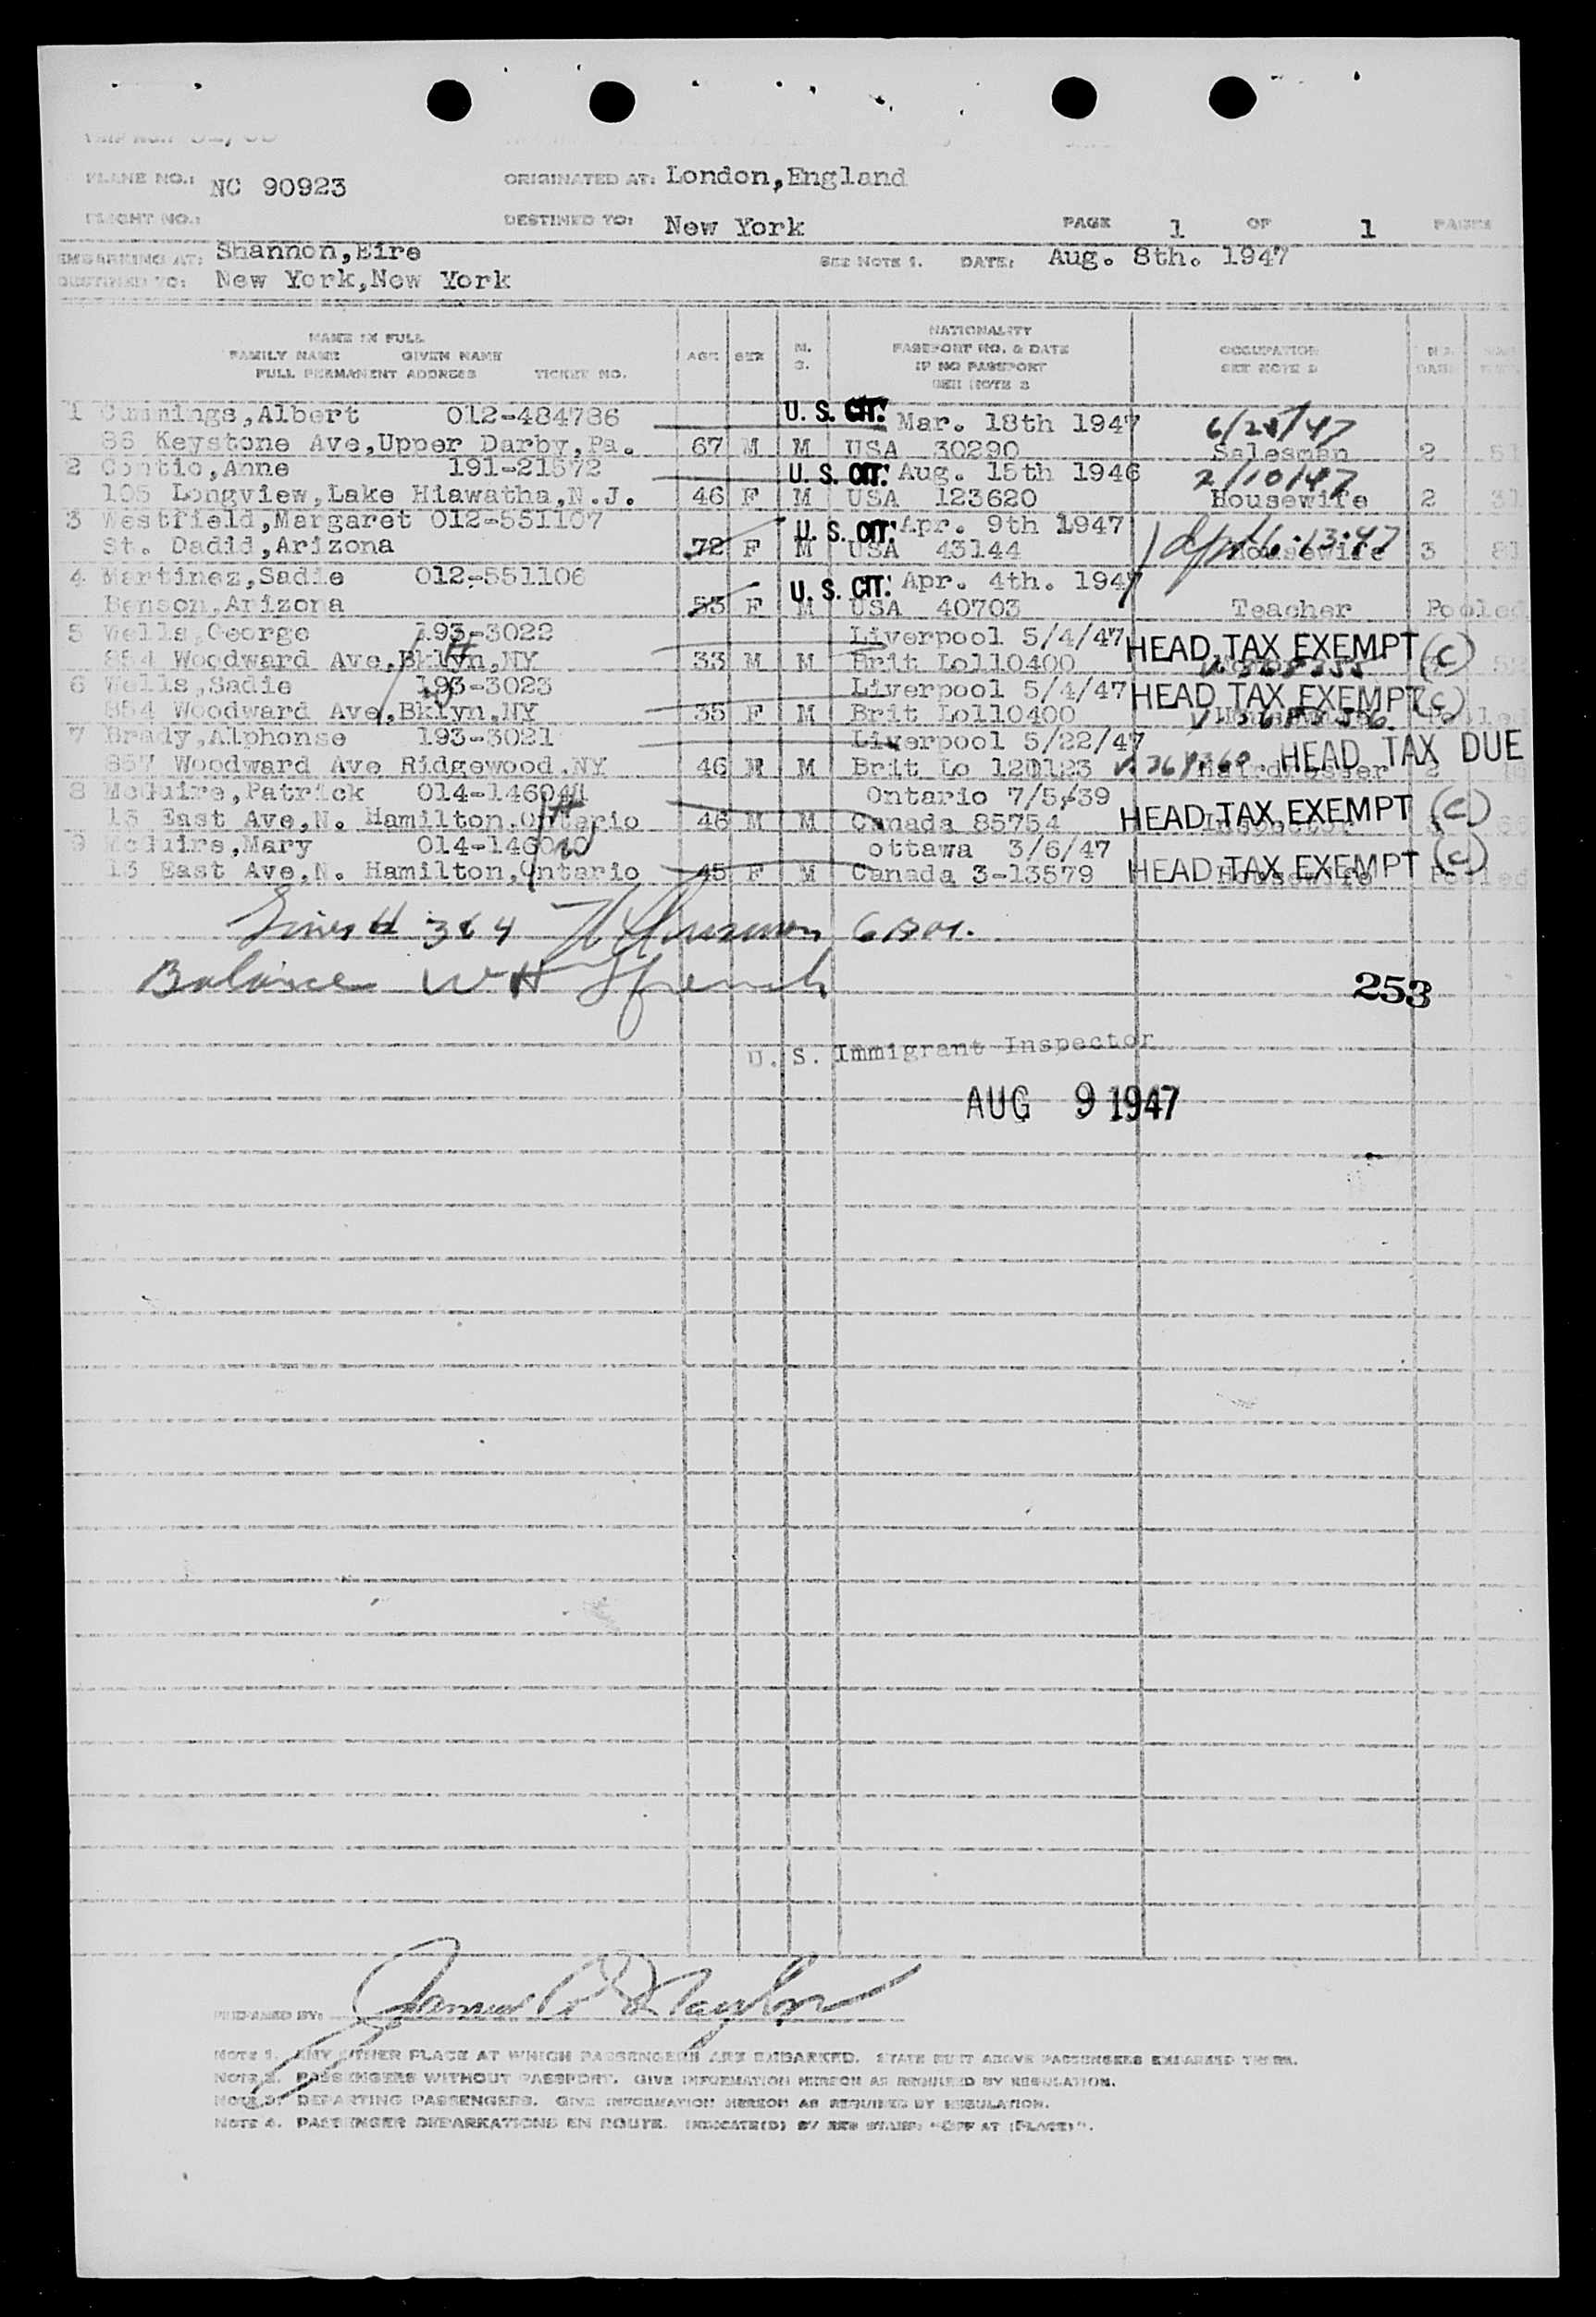 PLANE NO.: NC 90923 ORIGINATED AT: London,England
FLIGHT NO.: DESTINED TO: New York PAGE 1 OF 1 PAGES
EMBARKING AT: Shannon,Eire SEE NOTE 1. DATE: Aug. 8th. 1947
DESTINED TO: New York,New York
NAME IN FULL
FAMILY NAME GIVEN NAME
FULL PERMANENT ADDRESS TICKET NO.
AGE SEX M. S.
NATIONALITY
PASSPORT NO. & DATE
IF NO PASSPORT
SEE NOTE 2
OCCUPATION
SEE NOTE 2
1 Cummings,Albert 012-484786 U. S. CIT. Mar. 18th 1947 6/25/47
86 Keystone Ave,Upper Darby,Pa. 67 M M USA 30290 Salesman 2 51
2 Contio,Anne 191-21572 U. S. CIT. Aug. 15th 1946 2/10/47
105 Longview,Lake Hiawatha,N.J. 46 F M USA 123620 Housewife 2 31
3 Westfield,Margaret 012-551107 U. S. CIT. Apr. 9th 1947
St. Dadid,Arizona 72 F M USA 43144 Housewife 3 81
4 Martinez,Sadie 012-551106 U. S. CIT. Apr. 4th. 1947
Benson,Arizona 53 F M USA 40703 Teacher Pooled
5 Wells,George 193-3022 Liverpool 5/4/47 HEAD TAX EXEMPT (C)
854 Woodward Ave,Bklyn,NY 33 M M Brit Lo110400
6 Wells,Sadie 193-3023 Liverpool 5/4/47 HEAD TAX EXEMPT (C)
854 Woodward Ave,Bklyn,NY 35 F M Brit Lo110400 Housewife Pooled
7 Brady,Alphonse 193-3021 Liverpool 5/22/47 HEAD TAX DUE
857 Woodward Ave Ridgewood.NY 46 M M Brit Lo 120123 Hairdresser 2
8 McGuire,Patrick 014-146041 Ontario 7/5/39
13 East Ave,N. Hamilton.Ontario 46 M M Canada 85754 HEAD TAX EXEMPT (C) Inspector
9 McGuire,Mary 014-146040 ottawa 3/6/47
13 East Ave,N. Hamilton,Ontario 45 F M Canada 3-13579 HEAD TAX EXEMPT (C) Housewife Pooled
Lines 3 & 4
Balance W H French
253
U. S. Immigrant Inspector
AUG 9 1947
PREPARED BY:
NOTE 1. ANY OTHER PLACE AT WHICH PASSENGERS ARE EMBARKED. STATE NEXT ABOVE PASSENGERS EMBARKED THERE.
NOTE 2. PASSENGERS WITHOUT PASSPORT. GIVE INFORMATION HEREON AS REQUIRED BY REGULATION.
NOTE 3. DEPARTING PASSENGERS. GIVE INFORMATION HEREON AS REQUIRED BY REGULATION.
NOTE 4. PASSENGER DEBARKATIONS EN ROUTE. INDICATE(D) BY RED STAMP: "OFF AT (PLACE)".